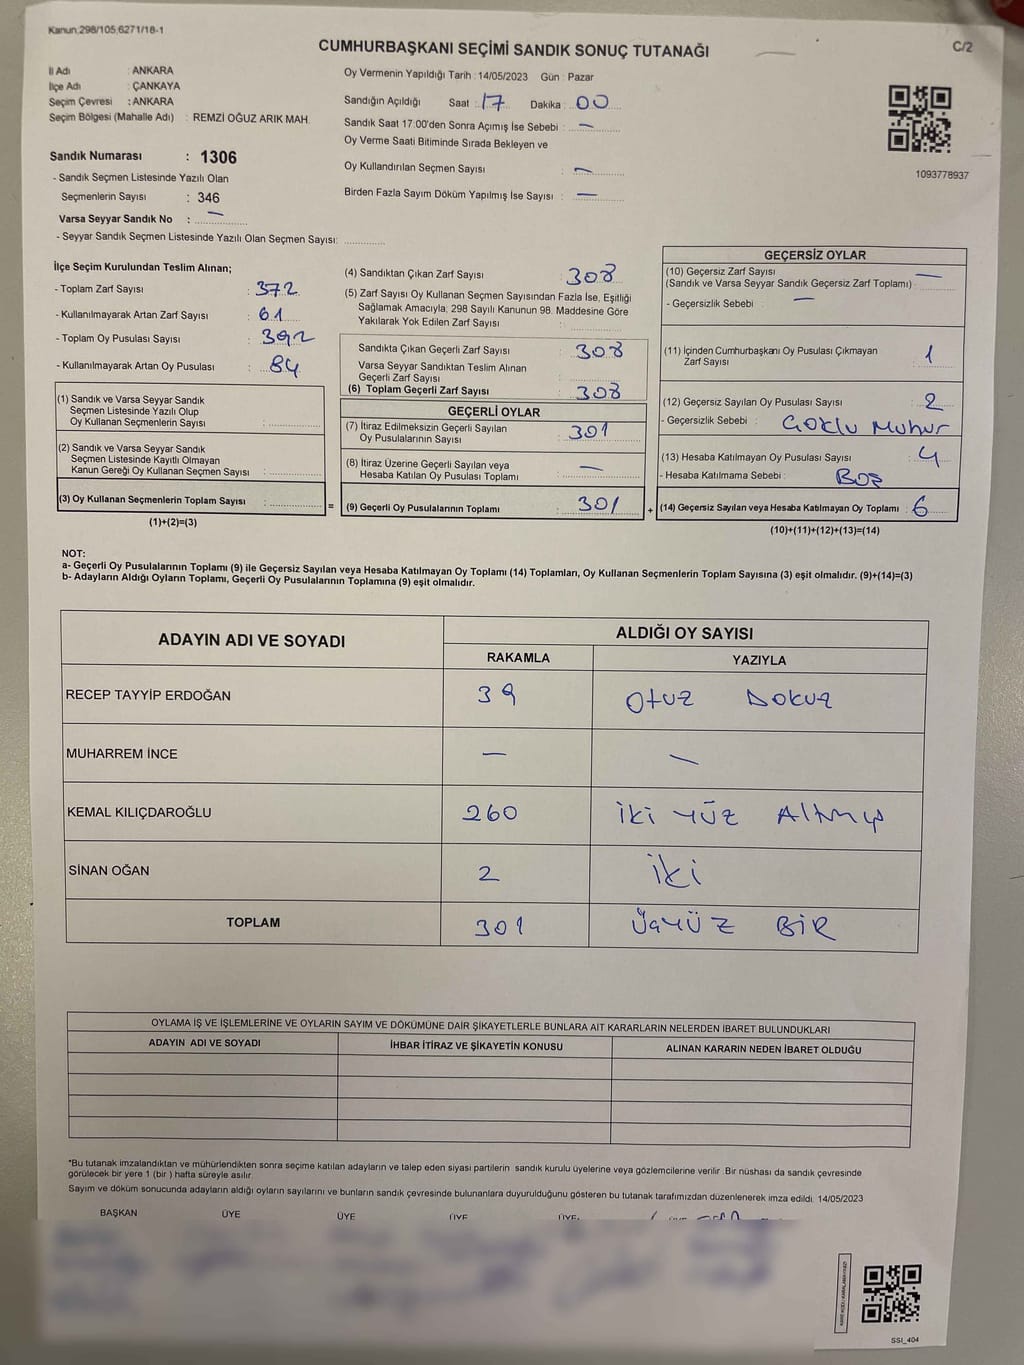 Kanun;298/105;6271/18-1
CUMHURBAŞKANI SEÇİMİ SANDIK SONUÇ TUTANAĞI
C/2
İl Adı : ANKARA
İlçe Adı : ÇANKAYA
Seçim Çevresi : ANKARA
Seçim Bölgesi (Mahalle Adı) : REMZİ OĞUZ ARIK MAH.
Sandık Numarası : 1306
- Sandık Seçmen Listesinde Yazılı Olan
Seçmenlerin Sayısı : 346
Varsa Seyyar Sandık No : —
- Seyyar Sandık Seçmen Listesinde Yazılı Olan Seçmen Sayısı:
Oy Vermenin Yapıldığı Tarih : 14/05/2023 Gün : Pazar
Sandığın Açıldığı Saat : 17 Dakika : 00
Sandık Saat 17:00'den Sonra Açımış İse Sebebi : —
Oy Verme Saati Bitiminde Sırada Bekleyen ve
Oy Kullandırılan Seçmen Sayısı : —
Birden Fazla Sayım Döküm Yapılmış İse Sayısı : —
1093778937
İlçe Seçim Kurulundan Teslim Alınan;
- Toplam Zarf Sayısı : 372
- Kullanılmayarak Artan Zarf Sayısı : 61
- Toplam Oy Pusulası Sayısı : 392
- Kullanılmayarak Artan Oy Pusulası : 84
(1) Sandık ve Varsa Seyyar Sandık
Seçmen Listesinde Yazılı Olup
Oy Kullanan Seçmenlerin Sayısı :
(2) Sandık ve Varsa Seyyar Sandık
Seçmen Listesinde Kayıtlı Olmayan
Kanun Gereği Oy Kullanan Seçmen Sayısı :
(3) Oy Kullanan Seçmenlerin Toplam Sayısı :
(1)+(2)=(3)
=
(4) Sandıktan Çıkan Zarf Sayısı : 308
(5) Zarf Sayısı Oy Kullanan Seçmen Sayısından Fazla İse, Eşitliği
Sağlamak Amacıyla; 298 Sayılı Kanunun 98. Maddesine Göre
Yakılarak Yok Edilen Zarf Sayısı :
Sandıkta Çıkan Geçerli Zarf Sayısı : 308
Varsa Seyyar Sandıktan Teslim Alınan
Geçerli Zarf Sayısı :
(6) Toplam Geçerli Zarf Sayısı : 308
GEÇERLİ OYLAR
(7) İtiraz Edilmeksizin Geçerli Sayılan
Oy Pusulalarının Sayısı : 301
(8) İtiraz Üzerine Geçerli Sayılan veya
Hesaba Katılan Oy Pusulası Toplamı : —
(9) Geçerli Oy Pusulalarının Toplamı : 301
+
GEÇERSİZ OYLAR
(10) Geçersiz Zarf Sayısı —
(Sandık ve Varsa Seyyar Sandık Geçersiz Zarf Toplamı) :
- Geçersizlik Sebebi : —
(11) İçinden Cumhurbaşkanı Oy Pusulası Çıkmayan
Zarf Sayısı : 1
(12) Geçersiz Sayılan Oy Pusulası Sayısı : 2
- Geçersizlik Sebebi : Çoklu Mühür
(13) Hesaba Katılmayan Oy Pusulası Sayısı : 4
- Hesaba Katılmama Sebebi : Boş
(14) Geçersiz Sayılan veya Hesaba Katılmayan Oy Toplamı : 6
(10)+(11)+(12)+(13)=(14)
NOT:
a- Geçerli Oy Pusulalarının Toplamı (9) ile Geçersiz Sayılan veya Hesaba Katılmayan Oy Toplamı (14) Toplamları, Oy Kullanan Seçmenlerin Toplam Sayısına (3) eşit olmalıdır. (9)+(14)=(3)
b- Adayların Aldığı Oyların Toplamı, Geçerli Oy Pusulalarının Toplamına (9) eşit olmalıdır.
ADAYIN ADI VE SOYADI
ALDIĞI OY SAYISI
RAKAMLA
YAZIYLA
RECEP TAYYİP ERDOĞAN 39 Otuz Dokuz
MUHARREM İNCE — —
KEMAL KILIÇDAROĞLU 260 İki Yüz Altmış
SİNAN OĞAN 2 İki
TOPLAM 301 Üçyüz BİR
OYLAMA İŞ VE İŞLEMLERİNE VE OYLARIN SAYIM VE DÖKÜMÜNE DAİR ŞİKAYETLERLE BUNLARA AİT KARARLARIN NELERDEN İBARET BULUNDUKLARI
ADAYIN ADI VE SOYADI
İHBAR İTİRAZ VE ŞİKAYETİN KONUSU
ALINAN KARARIN NEDEN İBARET OLDUĞU
*Bu tutanak imzalandıktan ve mühürlendikten sonra seçime katılan adayların ve talep eden siyasi partilerin sandık kurulu üyelerine veya gözlemcilerine verilir. Bir nüshası da sandık çevresinde
görülecek bir yere 1 (bir ) hafta süreyle asılır.
Sayım ve döküm sonucunda adayların aldığı oyların sayılarını ve bunların sandık çevresinde bulunanlara duyurulduğunu gösteren bu tutanak tarafımızdan düzenlenerek imza edildi. 14/05/2023
BAŞKAN ÜYE ÜYE ÜYE ÜYE
SSI_404